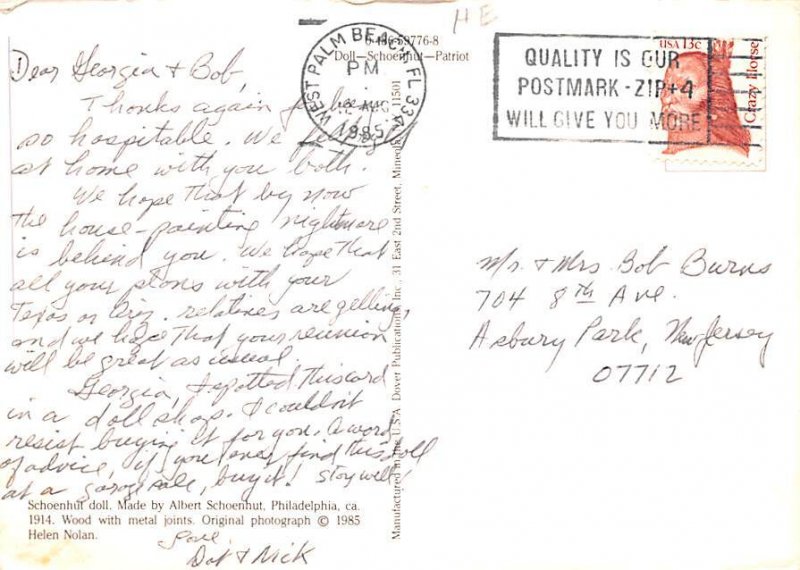 Dear Georgia & Bob,
Thanks again for being
so hospitable. We
at home with you both.
We hope that by now
the house-painting nightmare
is behind you. We hope that
all your plans with your
Texas or relatives are gelling,
and we hope that your reunion
will be great as usual.
Georgia, I spotted this card
in a doll shop. I couldn't
resist buying it for you. A word
of advice, if you ever find this doll
at a garage sale, buy it! Stay well!
Love,
Dot & Nick
Schoenhut doll. Made by Albert Schoenhut, Philadelphia, ca.
1914. Wood with metal joints. Original photograph © 1985
Helen Nolan.
Doll—Schoenhut—Patriot
Manufactured in the U.S.A. Dover Publications Inc., 31 East 2nd Street, Mineola 11501
WEST PALM BEACH FL 334
PM
AUG
1985
HE
QUALITY IS OUR
POSTMARK - ZIP+4
WILL GIVE YOU MORE
USA 13c
Crazy Horse
Mr. & Mrs Bob Burns
704 8th Ave.
Asbury Park, New Jersey
07712